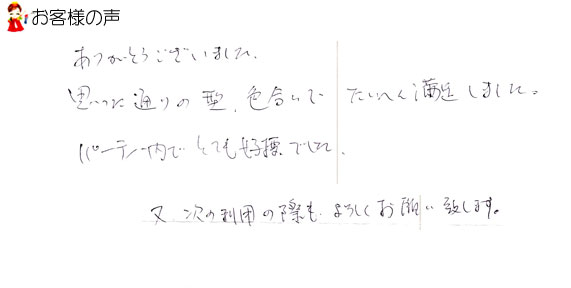 お客様の声
ありがとうございました。
思った通りの型、色合いで たいへん満足しました。
パーティー内でとても好評でした。
又、次の利用の際も、よろしくお願い致します。